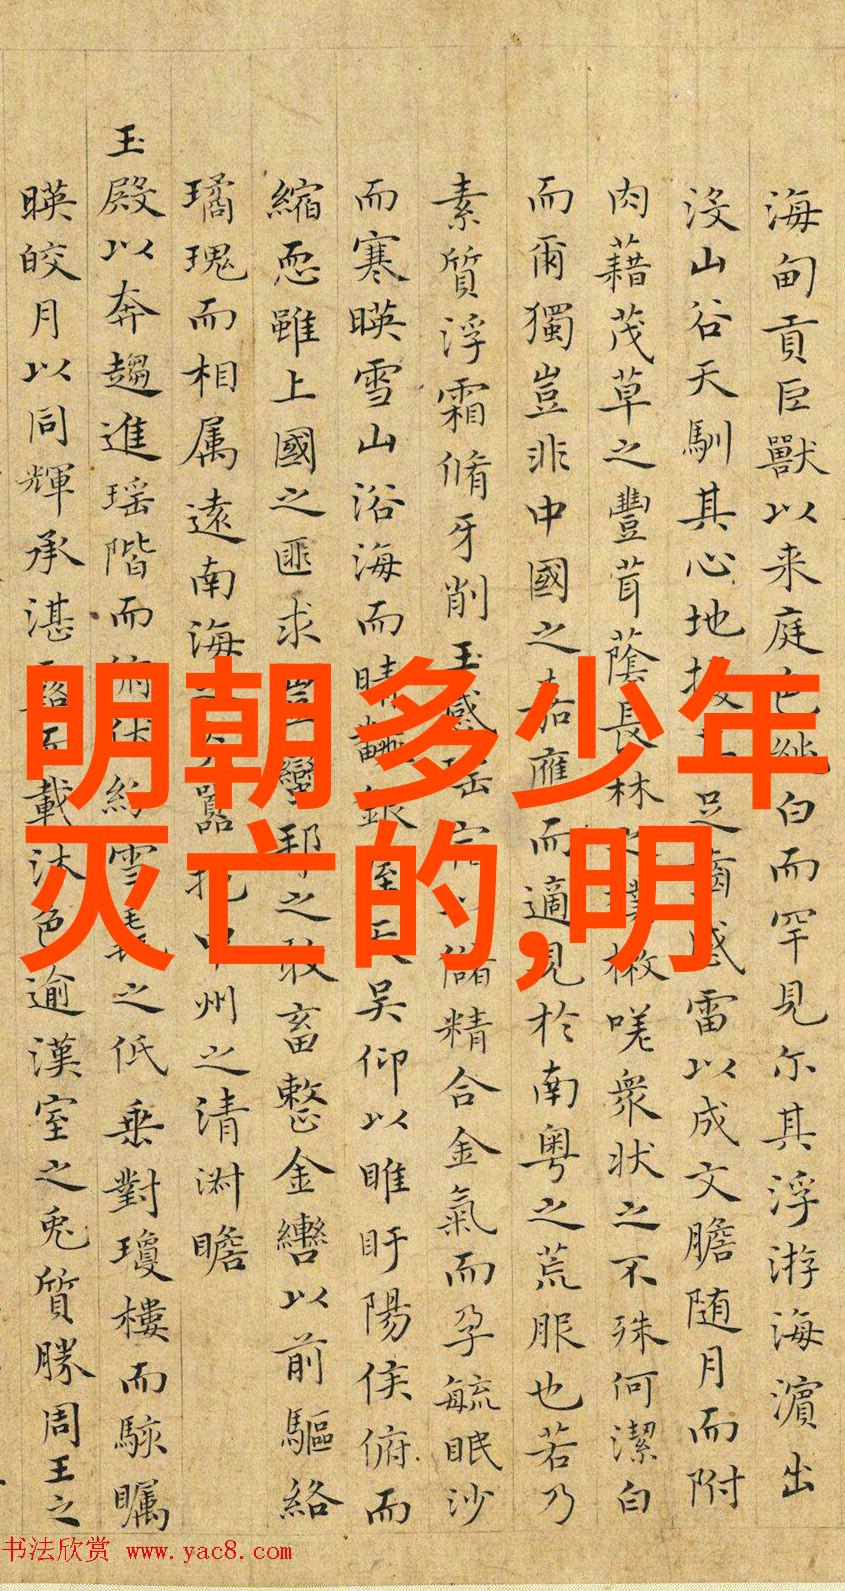 明朝多少年
灭亡的,明
海甸貢巨獸以来庭色白而罕見尔其浮游海濱出
没山谷天馴其心地足齒感雷以成文膽随月而附
肉藉茂草之豐茸蔭長林樕嘆衆状之不殊何潔白
而爾獨豈非中國之嘉應而適見於南粤之荒服也若乃
素質浮霜脩牙削玉感瑶儲精合金氣而孕毓眠沙
而寒暎雪山浴海而晴銀天吴仰以睢盱陽侯俯而
縮恧雖上國之匪求豈蠻邦之敢畜整金轡以前驅絡
璚瑰而相属遠南海囂挹中州之清淑瞻
玉殿以奔趨進瑶階而俯伏紛雪毳之低垂對瓊樓而駭矚
暎皎月以同輝承湛露載沐色逾漢室之兎質勝周王之
书法欣赏 www.yac8.com